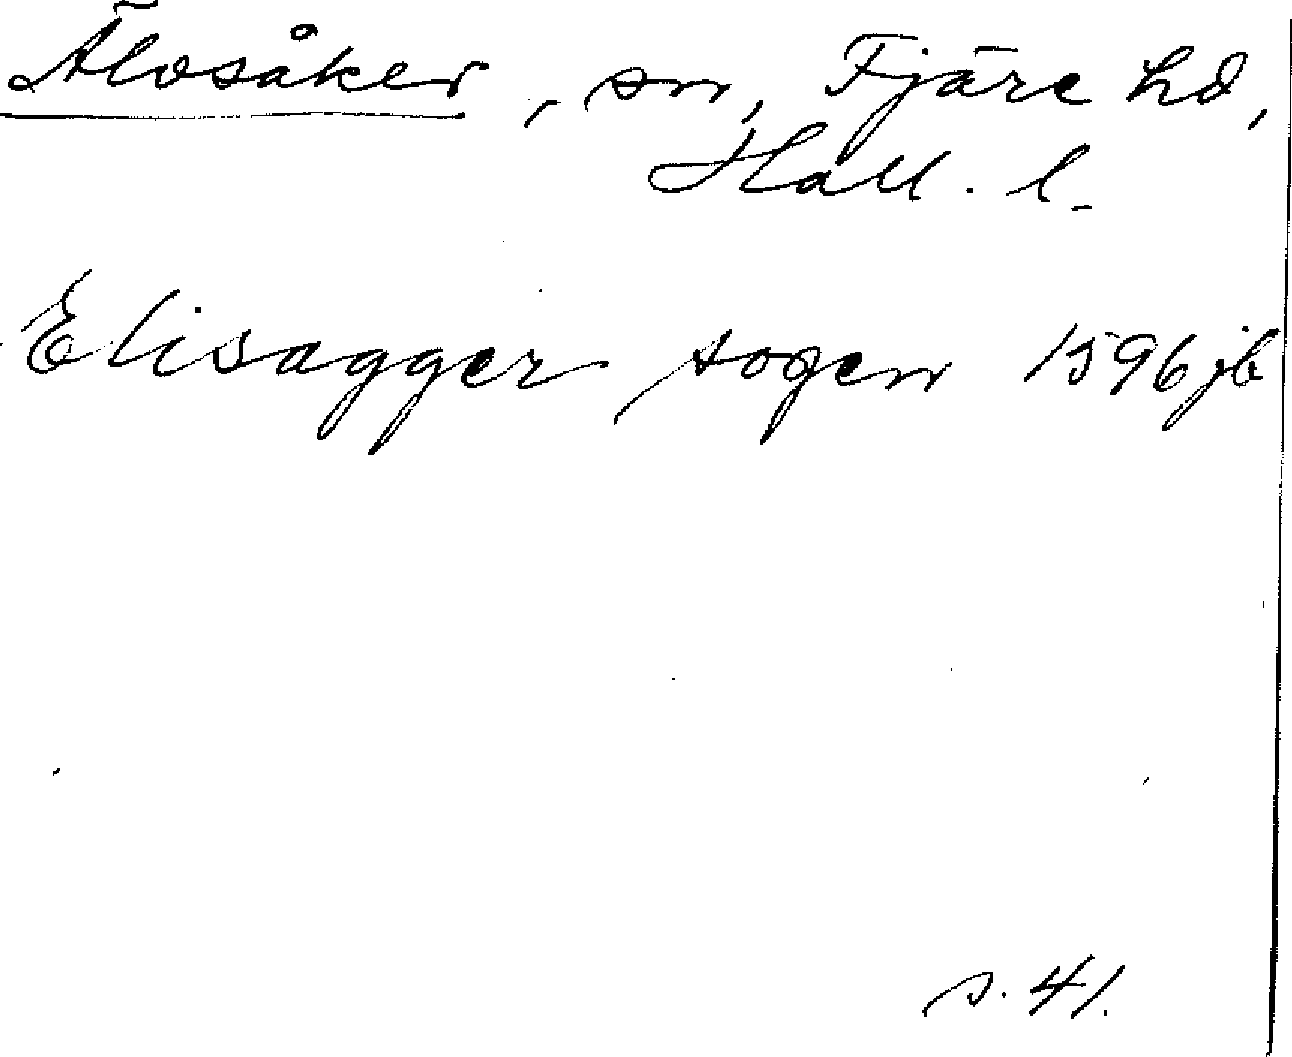 Älvsåker, sn, Fjäre hd,
Hall. l.
Elisagger sogen 1596 jb
s. 41.